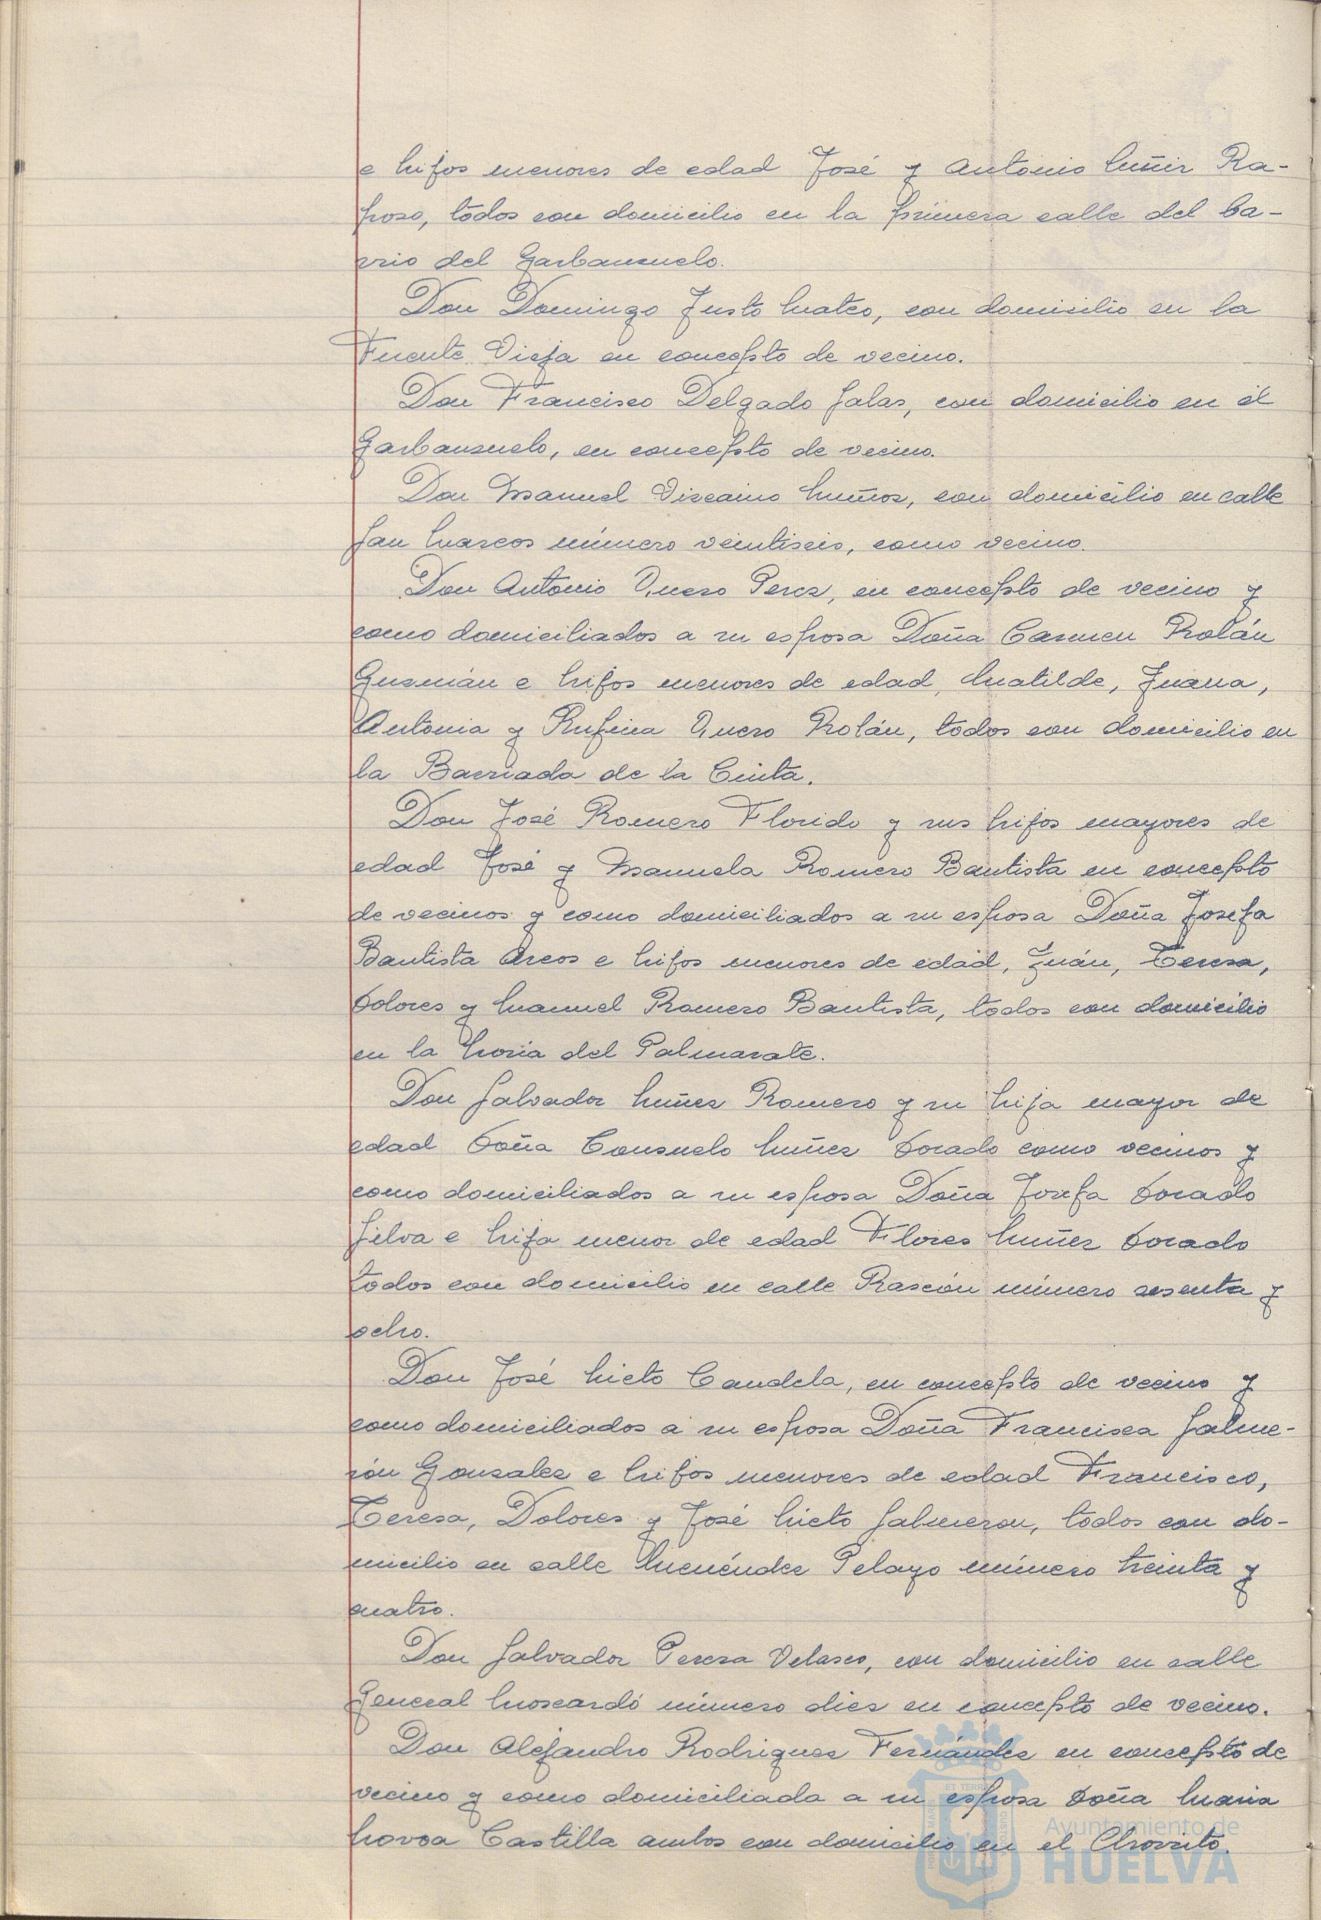 e hijos menores de edad José y Antonio Muñiz Ra-
poso, todos con domicilio en la primera calle del ba-
rrio del Garbanzuelo.
Don Domingo Justo Mateo, con domicilio en la
Fuente Vieja en concepto de vecino.
Don Francisco Delgado Salas, con domicilio en el
Garbanzuelo, en concepto de vecino.
Don Manuel Vizcaino Muñoz, con domicilio en calle
San Marcos número veintiseis, como vecino.
Don Antonio Quero Perez, en concepto de vecino y
como domiciliados a su esposa Doña Carmen Roldán
Guzmán e hijos menores de edad, Matilde, Juana,
Antonia y Rufina Quero Roldán, todos con domicilio en
la Barriada de la Cinta.
Don José Romero Florido y sus hijos mayores de
edad José y Manuela Romero Bautista en concepto
de vecinos y como domiciliados a su esposa Doña Josefa
Bautista Arcos e hijos menores de edad, Juán, Teresa,
Dolores y Manuel Romero Bautista, todos con domicilio
en la Noria del Palmarate.
Don Salvador Nuñez Romero y su hija mayor de
edad Doña Consuelo Nuñez Dorado como vecinos y
como domiciliados a su esposa Doña Josefa Dorado
Silva e hija menor de edad Flores Nuñez Dorado
todos con domicilio en calle Rascón número sesenta y
ocho.
Don José Nieto Candela, en concepto de vecino y
como domiciliados a su esposa Doña Francisca Salme-
rón Gonzalez e hijos menores de edad Francisco,
Teresa, Dolores y José Nieto Salmeron, todos con do-
micilio en calle Menéndez Pelayo número treinta y
cuatro.
Don Salvador Pereza Velasco, con domicilio en calle
General Moscardó número diez en concepto de vecino.
Don Alejandro Rodriguez Fernández en concepto de
vecino y como domiciliada a su esposa Doña Maria
Novoa Castilla ambos con domicilio en el Chorrito.
Ayuntamiento de
HUELVA